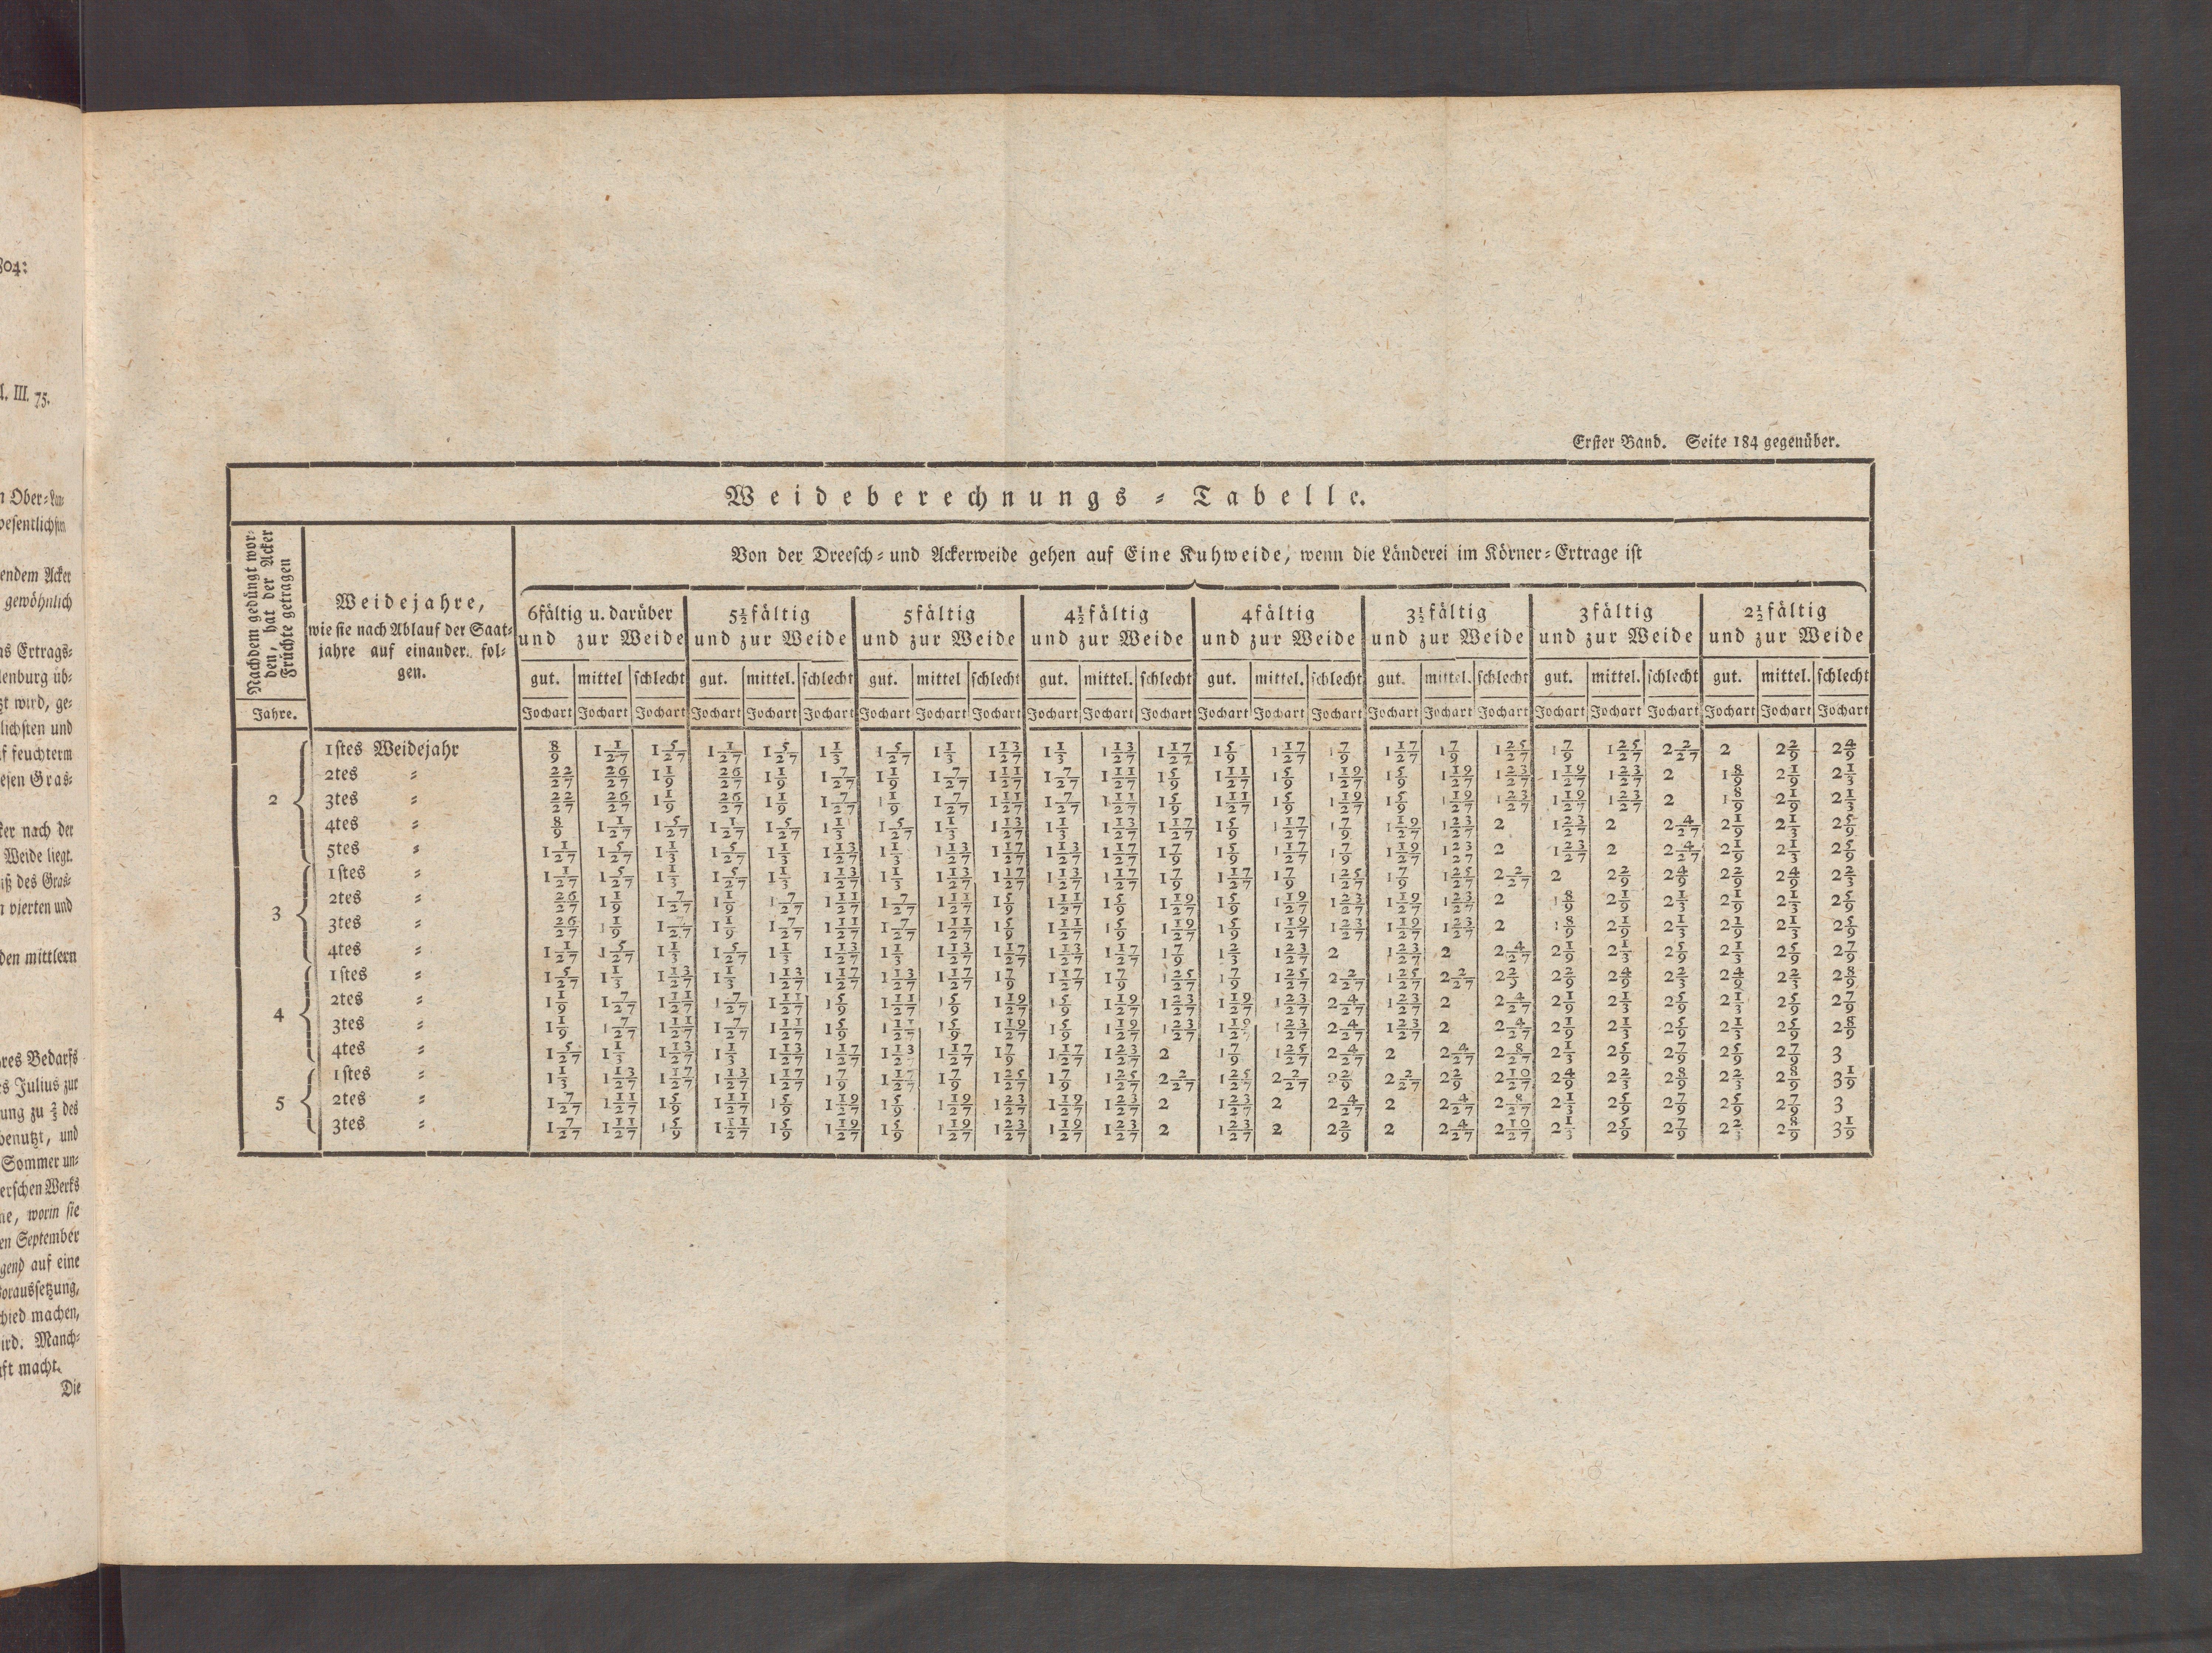 804:
III. 75.
Ober=
wesentlichsten
endem Acker
gewöhnlich
as Ertrags=
lenburg üb=
zt wird, ge=
lichsten und
uf feuchterm
esen Gras=
ker nach der
Weide liegt.
iß des Gras=
n vierten und
den mittlern
hres Bedarfs
es Julius zur
ung zu ⅔ des
benutzt, und
Sommer un=
erschen Werks
ne, worin sie
en September
gend auf eine
Voraussetzung,
schied machen,
ird. Manch=
ft macht.
Die
Erster Band. Seite 184 gegenüber.
Weideberechnungs = Tabelle.
Nachdem gedüngt wor=
den, hat der Acker
Früchte getragen
Jahre.
Weidejahre,
wie sie nach Ablauf der Saat=
jahre auf einander fol=
gen.
Von der Dreesch= und Ackerweide gehen auf Eine Kuhweide, wenn die Länderei im Körner=Ertrage ist
6fältig u. darüber 5½fältig 5fältig 4½fältig 4fältig 3½fältig 3fältig 2½fältig
und zur Weide und zur Weide und zur Weide und zur Weide und zur Weide und zur Weide und zur Weide und zur Weide
gut. mittel schlecht gut. mittel. schlecht gut. mittel schlecht gut. mittel. schlecht gut. mittel. schlecht gut. mittel. schlecht gut. mittel. schlecht gut. mittel. schlecht
Jochart Jochart Jochart Jochart Jochart Jochart Jochart Jochart Jochart Jochart Jochart Jochart Jochart Jochart Jochart Jochart Jochart Jochart Jochart Jochart Jochart Jochart Jochart Jochart
2
1stes Weidejahr 8/9 1 1/27 1 5/27 1 1/27 1 5/27 1 1/3 1 5/27 1 1/3 1 13/27 1 1/3 1 13/27 1 17/27 1 5/9 1 17/27 1 7/9 1 17/27 1 7/9 1 25/27 1 7/9 1 25/27 2 2/27 2 2 2/9 2 4/9
2tes = 22/27 26/27 1 1/9 26/27 1 1/9 1 7/27 1 1/9 1 7/27 1 11/27 1 7/27 1 11/27 1 5/9 1 11/27 1 5/9 1 19/27 1 5/9 1 19/27 1 23/27 1 19/27 1 23/27 2 1 8/9 2 1/9 2 1/3
3tes = 22/27 26/27 1 1/9 26/27 1 1/9 1 7/27 1 1/9 1 7/27 1 11/27 1 7/27 1 11/27 1 5/9 1 11/27 1 5/9 1 19/27 1 5/9 1 19/27 1 23/27 1 19/27 1 23/27 2 1 8/9 2 1/9 2 1/3
4tes = 8/9 1 1/27 1 5/27 1 1/27 1 5/27 1 1/3 1 5/27 1 1/3 1 13/27 1 1/3 1 13/27 1 17/27 1 5/9 1 17/27 1 7/9 1 19/27 1 23/27 2 1 23/27 2 2 4/27 2 1/9 2 1/3 2 5/9
5tes = 1 1/27 1 5/27 1 1/3 1 5/27 1 1/3 1 13/27 1 1/3 1 13/27 1 17/27 1 13/27 1 17/27 1 7/9 1 5/9 1 17/27 1 7/9 1 19/27 1 23/27 2 1 23/27 2 2 4/27 2 1/9 2 1/3 2 5/9
3
1stes = 1 1/27 1 5/27 1 1/3 1 5/27 1 1/3 1 13/27 1 1/3 1 13/27 1 17/27 1 13/27 1 17/27 1 7/9 1 17/27 1 7/9 1 25/27 1 7/9 1 25/27 2 2/27 2 2 2/9 2 4/9 2 2/9 2 4/9 2 2/3
2tes = 26/27 1 1/9 1 7/27 1 1/9 1 7/27 1 11/27 1 7/27 1 11/27 1 5/9 1 11/27 1 5/9 1 19/27 1 5/9 1 19/27 1 23/27 1 19/27 1 23/27 2 1 8/9 2 1/9 2 1/3 2 1/9 2 1/3 2 5/9
3tes = 26/27 1 1/9 1 7/27 1 1/9 1 7/27 1 11/27 1 7/27 1 11/27 1 5/9 1 11/27 1 5/9 1 19/27 1 5/9 1 19/27 1 23/27 1 19/27 1 23/27 2 1 8/9 2 1/9 2 1/3 2 1/9 2 1/3 2 5/9
4tes = 1 1/27 1 5/27 1 1/3 1 5/27 1 1/3 1 13/27 1 1/3 1 13/27 1 17/27 1 13/27 1 17/27 1 7/9 1 2/3 1 23/27 2 1 23/27 2 2 4/27 2 1/9 2 1/3 2 5/9 2 1/3 2 5/9 2 7/9
4
1stes = 1 5/27 1 1/3 1 13/27 1 1/3 1 13/27 1 17/27 1 13/27 1 17/27 1 7/9 1 17/27 1 7/9 1 25/27 1 7/9 1 25/27 2 2/27 1 25/27 2 2/27 2 2/9 2 2/9 2 4/9 2 2/3 2 4/9 2 2/3 2 8/9
2tes = 1 1/9 1 7/27 1 11/27 1 7/27 1 11/27 1 5/9 1 11/27 1 5/9 1 19/27 1 5/9 1 19/27 1 23/27 1 19/27 1 23/27 2 4/27 1 23/27 2 2 4/27 2 1/9 2 1/3 2 5/9 2 1/3 2 5/9 2 7/9
3tes = 1 1/9 1 7/27 1 11/27 1 7/27 1 11/27 1 5/9 1 11/27 1 5/9 1 19/27 1 5/9 1 19/27 1 23/27 1 19/27 1 23/27 2 4/27 1 23/27 2 2 4/27 2 1/9 2 1/3 2 5/9 2 1/3 2 5/9 2 8/9
4tes = 1 5/27 1 1/3 1 13/27 1 1/3 1 13/27 1 17/27 1 13/27 1 17/27 1 7/9 1 17/27 1 23/27 2 1 7/9 1 25/27 2 4/27 2 2 4/27 2 8/27 2 1/3 2 5/9 2 7/9 2 5/9 2 7/9 3
5
1stes = 1 1/3 1 13/27 1 17/27 1 13/27 1 17/27 1 7/9 1 17/27 1 7/9 1 25/27 1 7/9 1 25/27 2 2/27 1 25/27 2 2/27 2 2/9 2 2/27 2 2/9 2 10/27 2 4/9 2 2/3 2 8/9 2 2/3 2 8/9 3 1/9
2tes = 1 7/27 1 11/27 1 5/9 1 11/27 1 5/9 1 19/27 1 5/9 1 19/27 1 23/27 1 19/27 1 23/27 2 1 23/27 2 2 4/27 2 2 4/27 2 8/27 2 1/3 2 5/9 2 7/9 2 5/9 2 7/9 3
3tes = 1 7/27 1 11/27 1 5/9 1 11/27 1 5/9 1 19/27 1 5/9 1 19/27 1 23/27 1 19/27 1 23/27 2 1 23/27 2 2 2/9 2 2 4/27 2 10/27 2 1/3 2 5/9 2 7/9 2 2/3 2 8/9 3 1/9